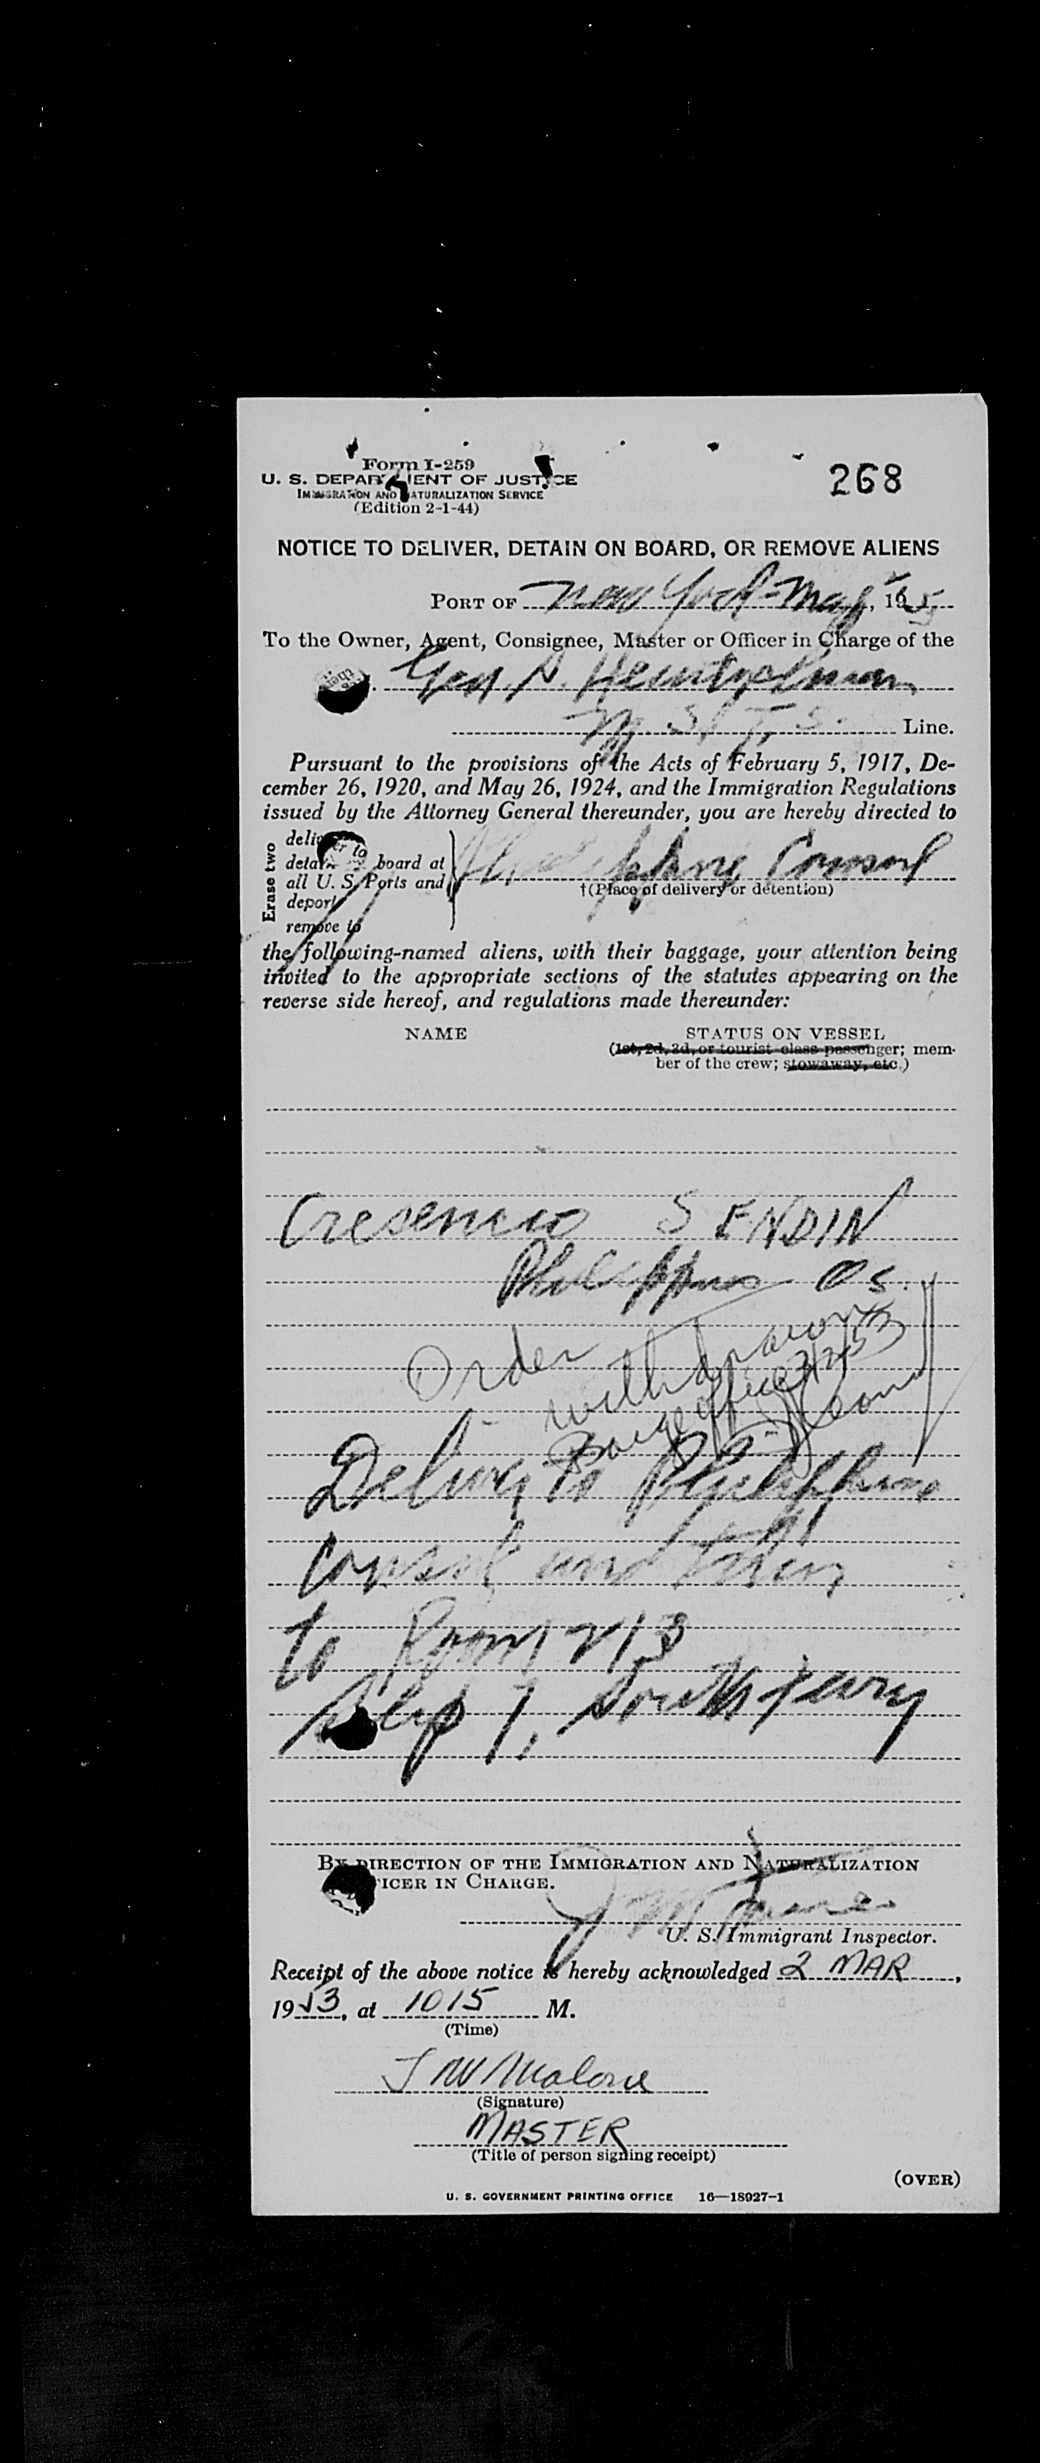 Form I-259
268
U. S. DEPARTMENT OF JUSTICE
IMMIGRATION AND NATURALIZATION SERVICE
(Edition 2-1-44)
NOTICE TO DELIVER, DETAIN ON BOARD, OR REMOVE ALIENS
PORT OF New York, 195
To the Owner, Agent, Consignee, Master or Officer in Charge of the
Gen. S. Heintzelman
M. S. T. S. Line.
Pursuant to the provisions of the Acts of February 5, 1917, De-
cember 26, 1920, and May 26, 1924, and the Immigration Regulations
issued by the Attorney General thereunder, you are hereby directed to
Erase two
deliver to
detain on board at
all U. S. Ports and
deport
remove to
Consul
†(Place of delivery or detention)
the following-named aliens, with their baggage, your attention being
invited to the appropriate sections of the statutes appearing on the
reverse side hereof, and regulations made thereunder:
NAME
STATUS ON VESSEL
(1st, 2d, 3d, or tourist class passenger; mem-
ber of the crew; stowaway, etc.)
Cresencio SENDIN
Philippine OS.
Order withdrawn
Barge office 3/2/53
Deliver to Philippine
Consul and then
to Room 213
Slip 7, South Ferry
BY DIRECTION OF THE IMMIGRATION AND NATURALIZATION
OFFICER IN CHARGE.
U. S. Immigrant Inspector.
Receipt of the above notice is hereby acknowledged 2 MAR,
1953, at 1015 M.
(Time)
J W Malone
(Signature)
MASTER
(Title of person signing receipt)
(OVER)
U. S. GOVERNMENT PRINTING OFFICE 16—18927-1